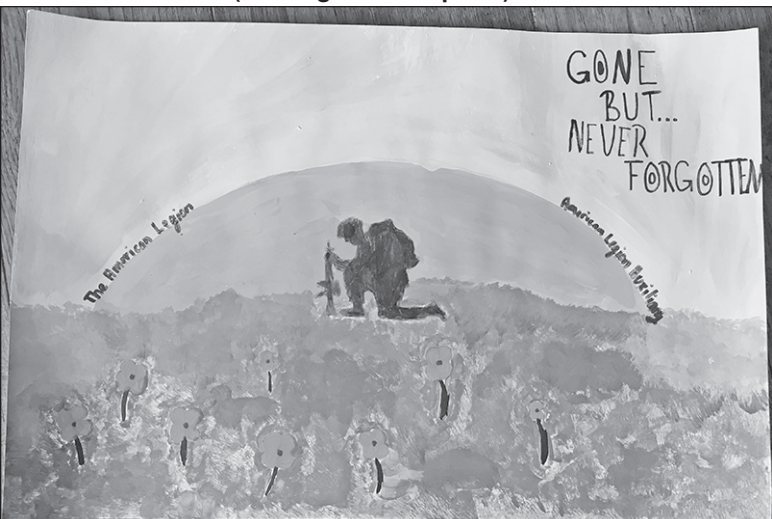 GONE
BUT...
NEVER
FORGOTTEN
The American Legion
American Legion Auxiliary